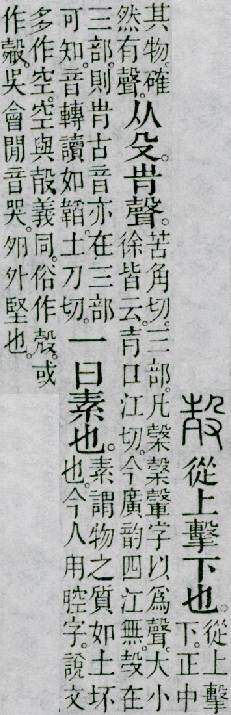 㱿
從上擊下也。
從上擊
下。正中
其物確
然有聲。
从殳𡉉聲。
苦角切。三部。凡榖穀轂字以爲聲。大小
徐皆云。𡉉口江切。今廣韵四江無。㱿在
三部。則𡉉古音亦在三部
可知。音轉讀如韜。土刀切。
一曰素也。
素謂物之質如土坏
也。今人用腔字。說文
多作空。空與㱿義同。俗作㱿。或
作㱿。吳會閒音哭。夘外堅也。